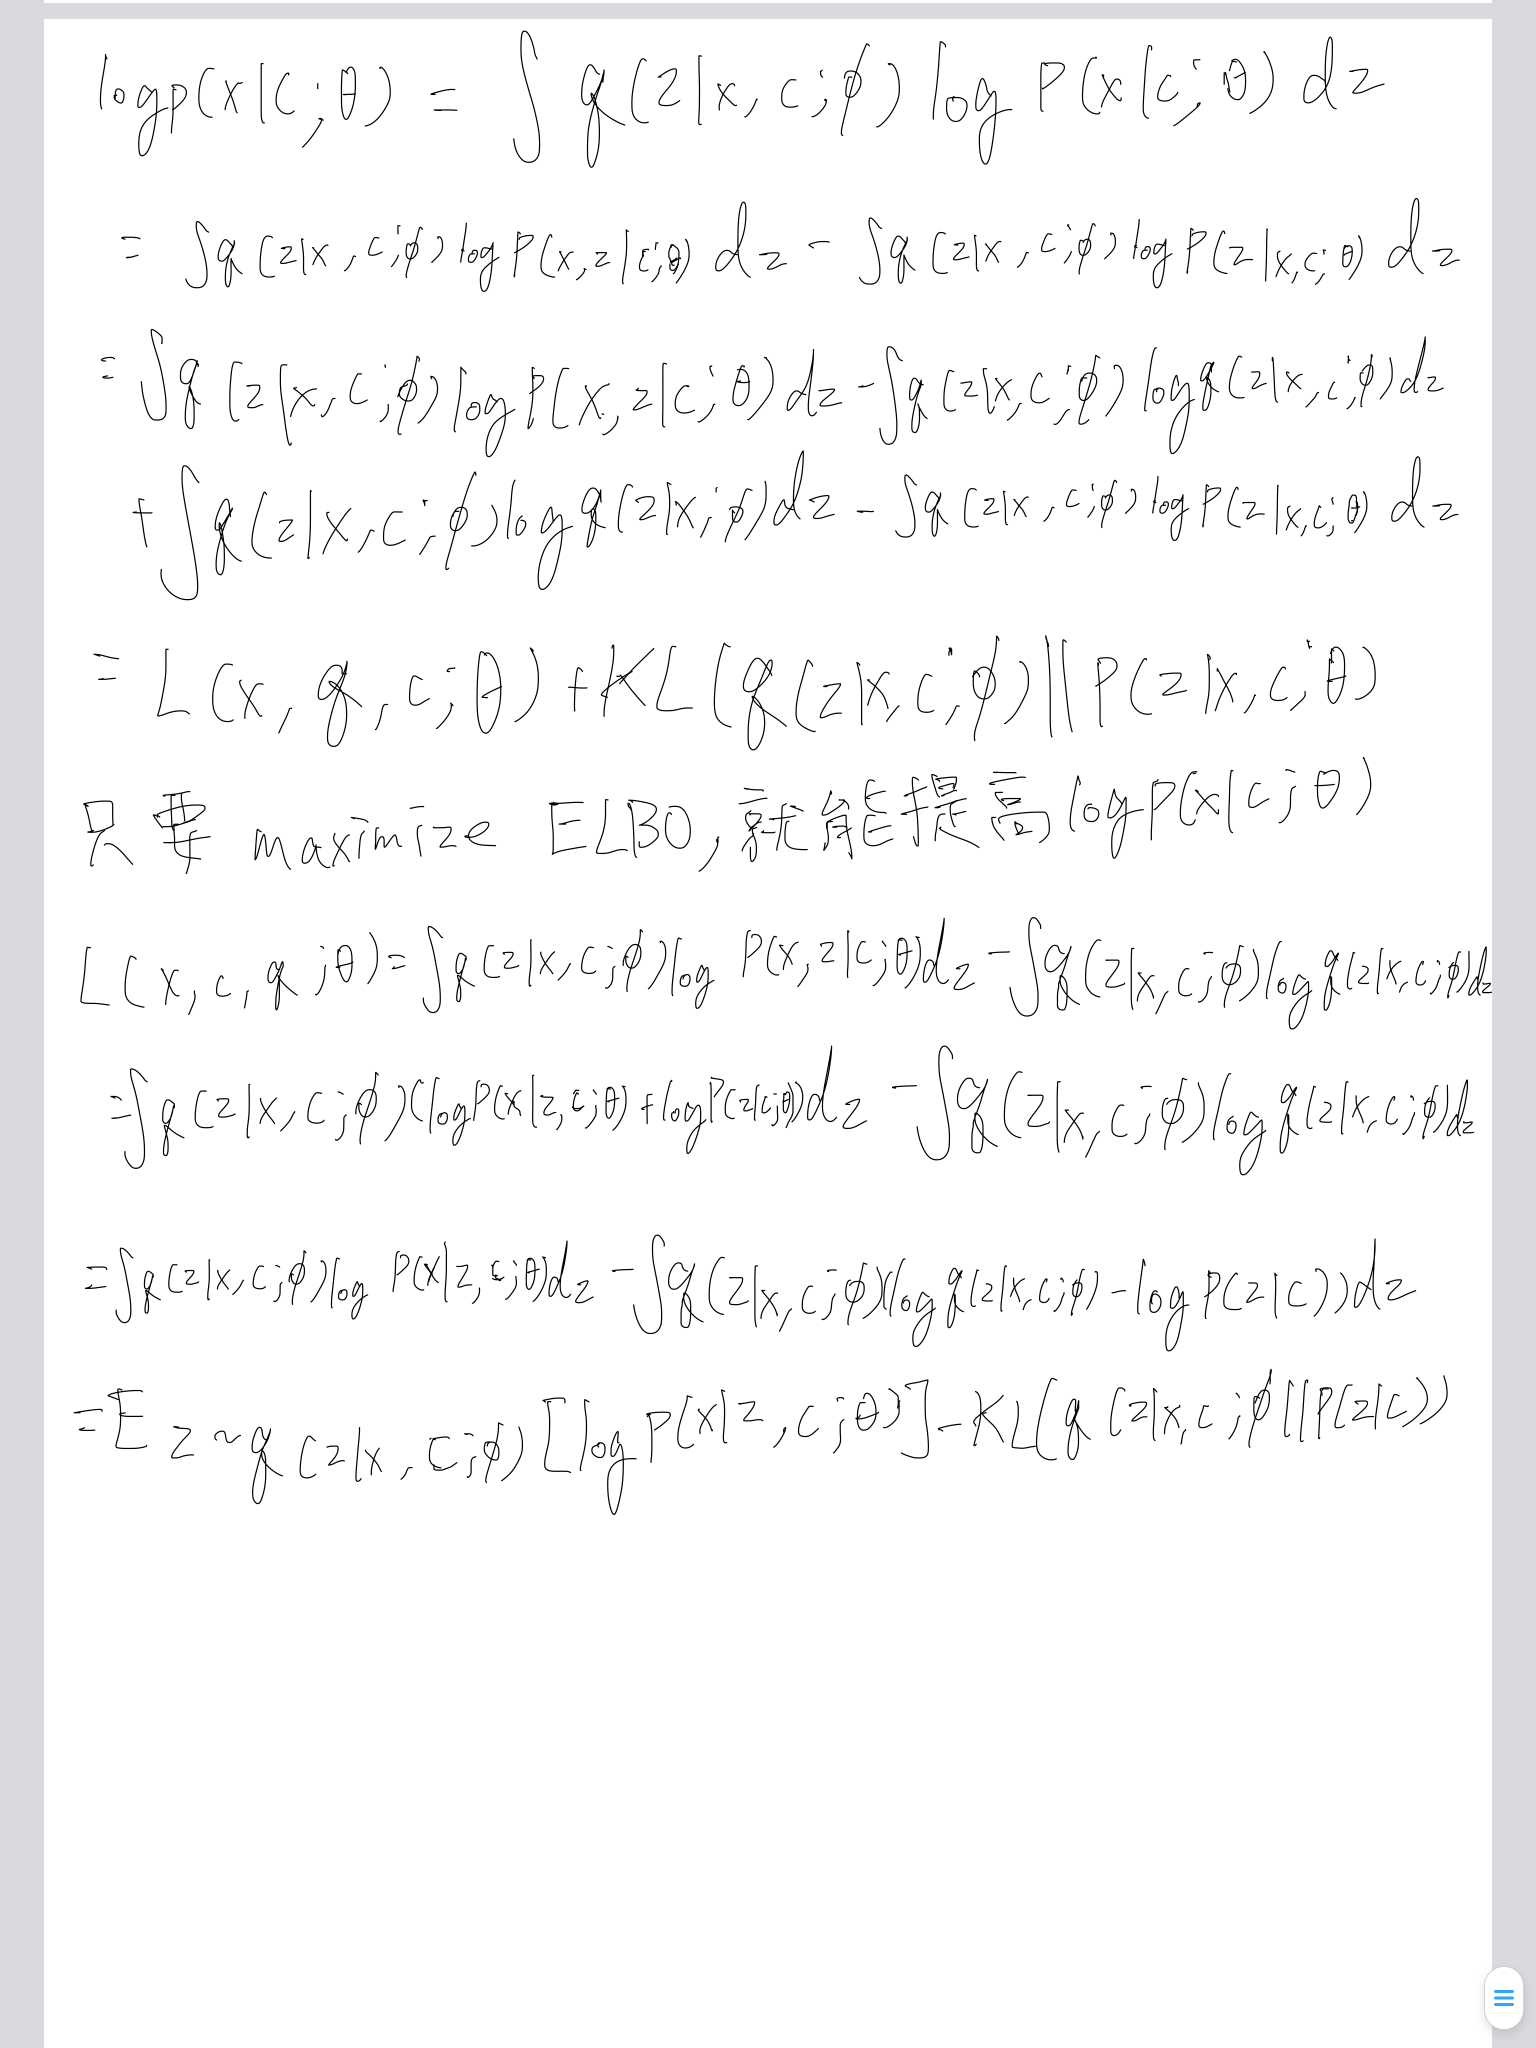 log p(x|c;θ) = ∫ q(z|x,c;φ) log P(x|c;θ) dz
= ∫q(z|x,c;φ) log P(x,z|c;θ) dz - ∫q(z|x,c;φ) log P(z|x,c;θ) dz
= ∫q(z|x,c;φ) log P(x,z|c;θ) dz - ∫q(z|x,c;φ) log q(z|x,c;φ) dz
+ ∫q(z|x,c;φ) log q(z|x;φ) dz - ∫q(z|x,c;φ) log P(z|x,c;θ) dz
= L(x,q,c;θ) + KL(q(z|x,c;φ)||P(z|x,c;θ)
只要 maximize ELBO, 就能提高 log p(x|c;θ)
L(x,c,q;θ) = ∫q(z|x,c;φ) log P(x,z|c;θ) dz - ∫q(z|x,c;φ) log q(z|x,c;φ) dz
= ∫q(z|x,c;φ)(log P(x|z,c;θ) + log P(z|c;θ)) dz - ∫q(z|x,c;φ) log q(z|x,c;φ) dz
= ∫q(z|x,c;φ) log P(x|z,c;θ) dz - ∫q(z|x,c;φ)(log q(z|x,c;φ) - log P(z|c)) dz
= E z~q(z|x,c;φ) [log P(x|z,c;θ)] - KL(q(z|x,c;φ||P(z|c))